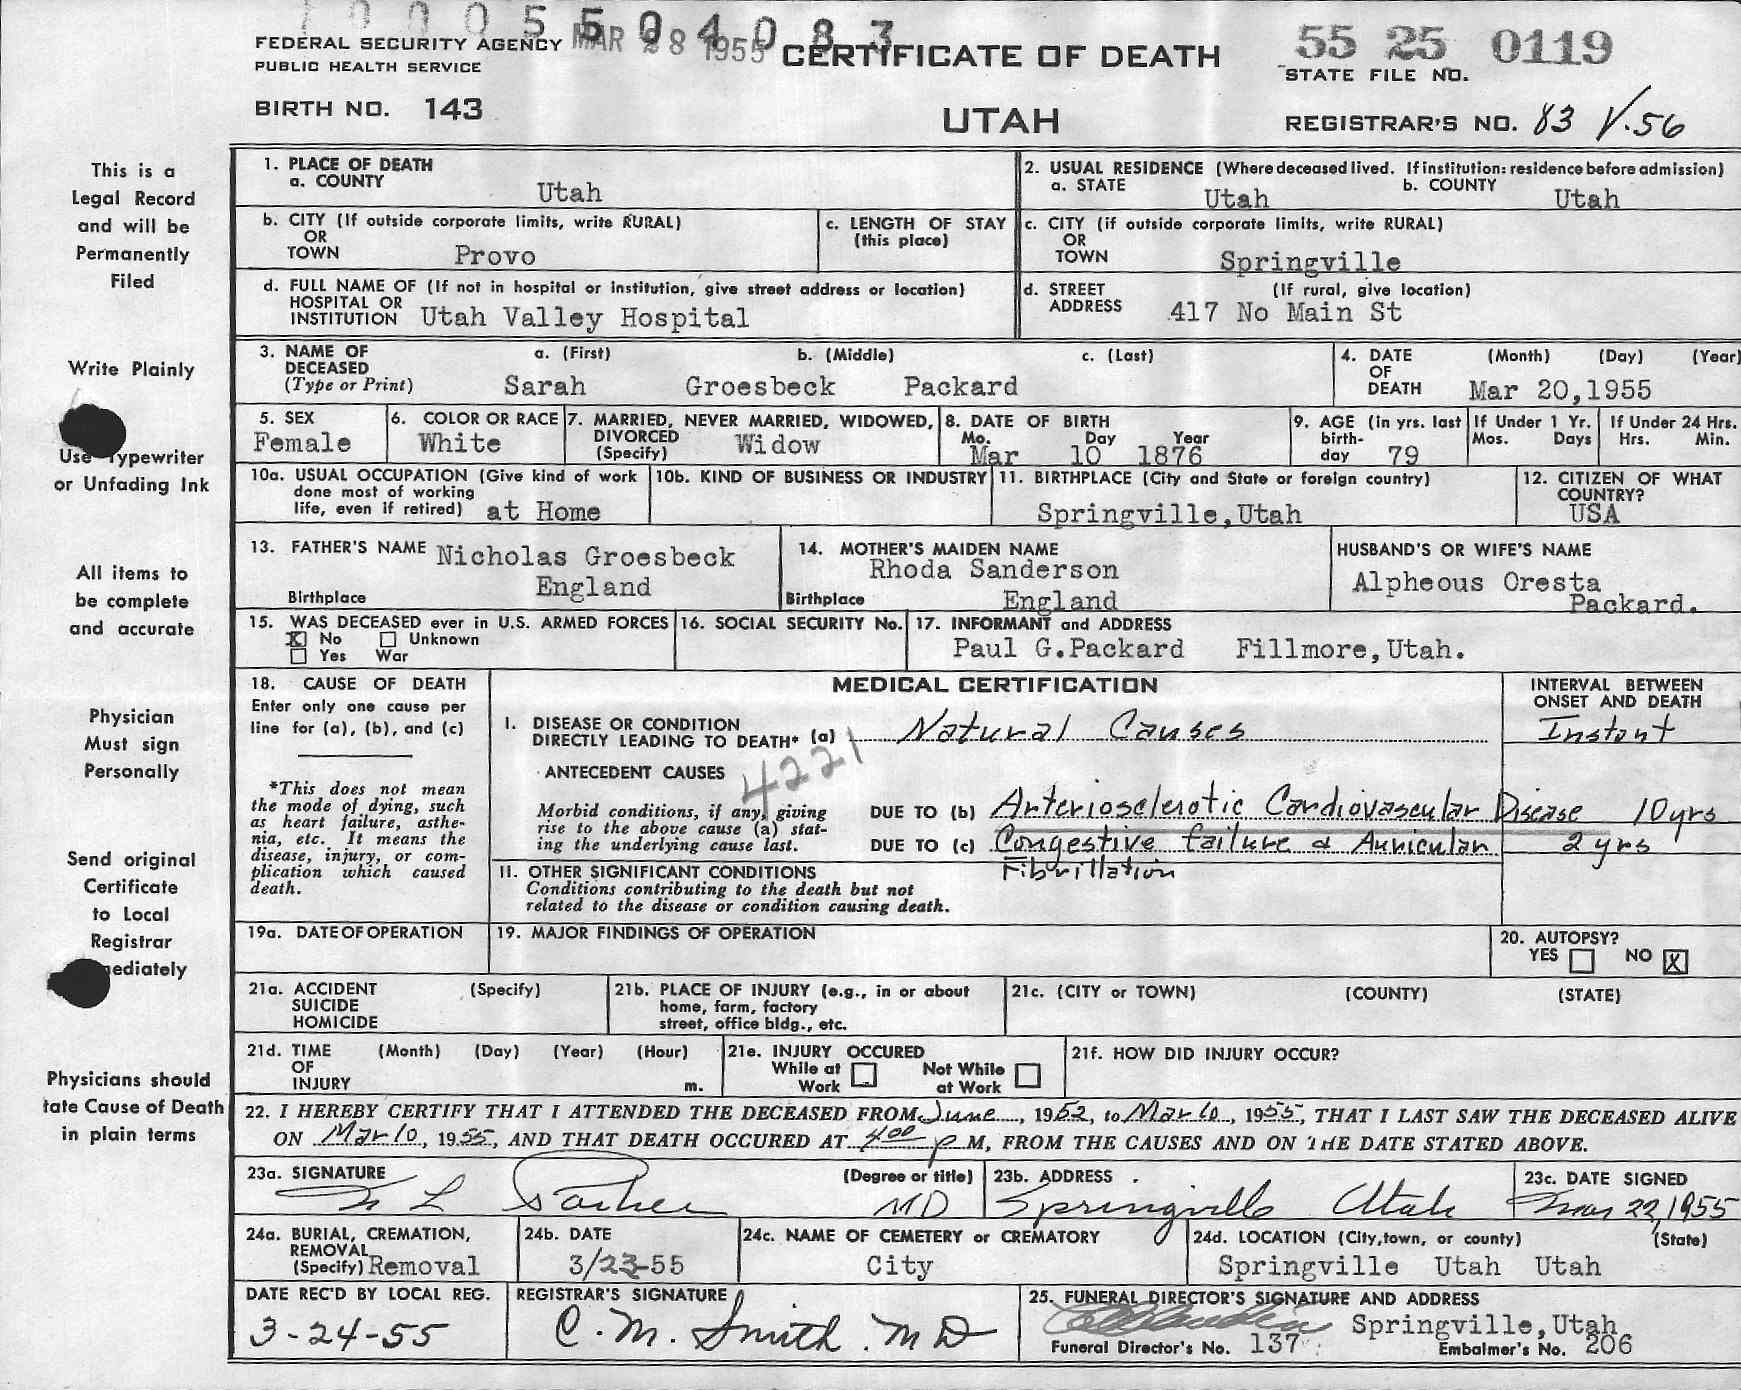 70005504083
MAR 28 1955
FEDERAL SECURITY AGENCY
PUBLIC HEALTH SERVICE
BIRTH NO. 143
CERTIFICATE OF DEATH
UTAH
55 25 0119
STATE FILE NO.
REGISTRAR'S NO. 83 V.56
This is a
Legal Record
and will be
Permanently
Filed
Write Plainly
Use Typewriter
or Unfading Ink
All items to
be complete
and accurate
Physician
Must sign
Personally
Send original
Certificate
to Local
Registrar
mediately
Physicians should
tate Cause of Death
in plain terms
1. PLACE OF DEATH
a. COUNTY
Utah
2. USUAL RESIDENCE (Where deceased lived. If institution: residence before admission)
a. STATE Utah b. COUNTY Utah
b. CITY (If outside corporate limits, write RURAL)
OR
TOWN Provo
c. LENGTH OF STAY
(this place)
c. CITY (if outside corporate limits, write RURAL)
OR
TOWN Springville
d. FULL NAME OF (If not in hospital or institution, give street address or location)
HOSPITAL OR
INSTITUTION Utah Valley Hospital
d. STREET (If rural, give location)
ADDRESS 417 No Main St
3. NAME OF a. (First) b. (Middle) c. (Last)
DECEASED
(Type or Print) Sarah Groesbeck Packard
4. DATE (Month) (Day) (Year)
OF
DEATH Mar 20,1955
5. SEX
Female
6. COLOR OR RACE
White
7. MARRIED, NEVER MARRIED, WIDOWED,
DIVORCED
(Specify) Widow
8. DATE OF BIRTH
Mo. Day Year
Mar 10 1876
9. AGE (in yrs. last
birth-
day 79
If Under 1 Yr.
Mos. Days
If Under 24 Hrs.
Hrs. Min.
10a. USUAL OCCUPATION (Give kind of work
done most of working
life, even if retired) at Home
10b. KIND OF BUSINESS OR INDUSTRY
11. BIRTHPLACE (City and State or foreign country)
Springville,Utah
12. CITIZEN OF WHAT
COUNTRY?
USA
13. FATHER'S NAME Nicholas Groesbeck
Birthplace England
14. MOTHER'S MAIDEN NAME
Rhoda Sanderson
Birthplace England
HUSBAND'S OR WIFE'S NAME
Alpheous Oresta
Packard.
15. WAS DECEASED ever in U.S. ARMED FORCES
X No Unknown
Yes War
16. SOCIAL SECURITY No.
17. INFORMANT and ADDRESS
Paul G.Packard Fillmore,Utah.
18. CAUSE OF DEATH
Enter only one cause per
line for (a), (b), and (c)
*This does not mean
the mode of dying, such
as heart failure, asthe-
nia, etc. It means the
disease, injury, or com-
plication which caused
death.
MEDICAL CERTIFICATION
INTERVAL BETWEEN
ONSET AND DEATH
I. DISEASE OR CONDITION
DIRECTLY LEADING TO DEATH* (a) Natural Causes Instant
ANTECEDENT CAUSES
4221
Morbid conditions, if any, giving
rise to the above cause (a) stat-
ing the underlying cause last.
DUE TO (b) Arteriosclerotic Cardiovascular Disease 10 yrs
DUE TO (c) Congestive failure & Auricular 2 yrs
Fibrillation
II. OTHER SIGNIFICANT CONDITIONS
Conditions contributing to the death but not
related to the disease or condition causing death.
19a. DATE OF OPERATION
19. MAJOR FINDINGS OF OPERATION
20. AUTOPSY?
YES NO X
21a. ACCIDENT (Specify)
SUICIDE
HOMICIDE
21b. PLACE OF INJURY (e.g., in or about
home, farm, factory
street, office bldg., etc.
21c. (CITY or TOWN) (COUNTY) (STATE)
21d. TIME (Month) (Day) (Year) (Hour)
OF
INJURY m.
21e. INJURY OCCURED
While at Not While
Work at Work
21f. HOW DID INJURY OCCUR?
22. I HEREBY CERTIFY THAT I ATTENDED THE DECEASED FROM June, 1952, to Mar 10, 1955, THAT I LAST SAW THE DECEASED ALIVE
ON Mar 10, 1955, AND THAT DEATH OCCURED AT 4:00 p M, FROM THE CAUSES AND ON THE DATE STATED ABOVE.
23a. SIGNATURE (Degree or title)
MD
23b. ADDRESS
Springville Utah
23c. DATE SIGNED
Mar 22, 1955
24a. BURIAL, CREMATION,
REMOVAL
(Specify) Removal
24b. DATE
3/23-55
24c. NAME OF CEMETERY or CREMATORY
City
24d. LOCATION (City,town, or county) (State)
Springville Utah Utah
DATE REC'D BY LOCAL REG.
3-24-55
REGISTRAR'S SIGNATURE
C. M. Smith. MD
25. FUNERAL DIRECTOR'S SIGNATURE AND ADDRESS
Springville,Utah
Funeral Director's No. 137 Embalmer's No. 206